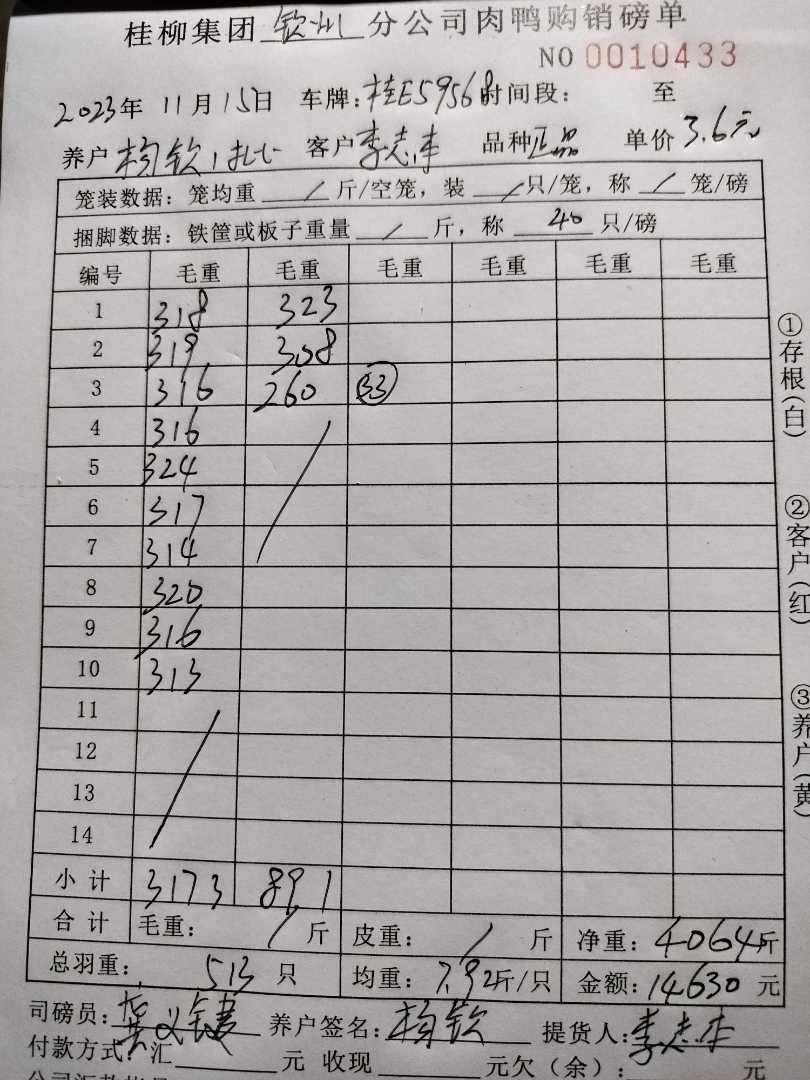 桂柳集团 钦州 分公司肉鸭购销磅单
NO 0010433
2023年 11月 15日 车牌:桂E59568 时间段: 至
养户 杨钦 客户 李志 品种 正品 单价 3.6元
笼装数据: 笼均重 / 斤/空笼, 装 / 只/笼, 称 / 笼/磅
捆脚数据: 铁筐或板子重量 / 斤, 称 40 只/磅
编号 毛重 毛重 毛重 毛重 毛重 毛重
1 318 323
2 319 308
3 316 260 33
4 316
5 324
6 317
7 314
8 320
9 316
10 313
11
12
13
14
小计 3173 891
合计 毛重: / 斤 皮重: / 斤 净重: 4064斤
总羽重: 513 只 均重: 7.92斤/只 金额: 14630 元
司磅员: 养户签名: 杨钦 提货人: 李志
付款方式: 汇 元 收现 元欠(余): 元
①存根(白)
②客户(红)
③养户(黄)